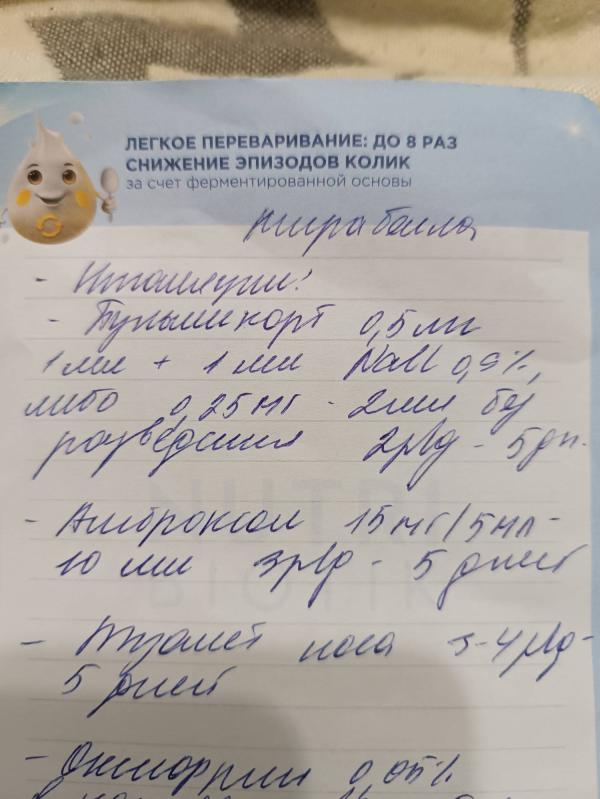 ЛЕГКОЕ ПЕРЕВАРИВАНИЕ: ДО 8 РАЗ
СНИЖЕНИЕ ЭПИЗОДОВ КОЛИК
за счет ферментированной основы
- Ингаляции:
- Пульмикорт 0,5 мг
1 мл + 1 мл NaCl 0,9%,
либо 0,25 мг - 2 мл без
разведения 2р/д - 5 дн.
- Амброксол 15 мг/5 мл -
10 мл 3р/д - 5 дней
- Туалет носа 3-4 р/д -
5 дней
- 0,05%